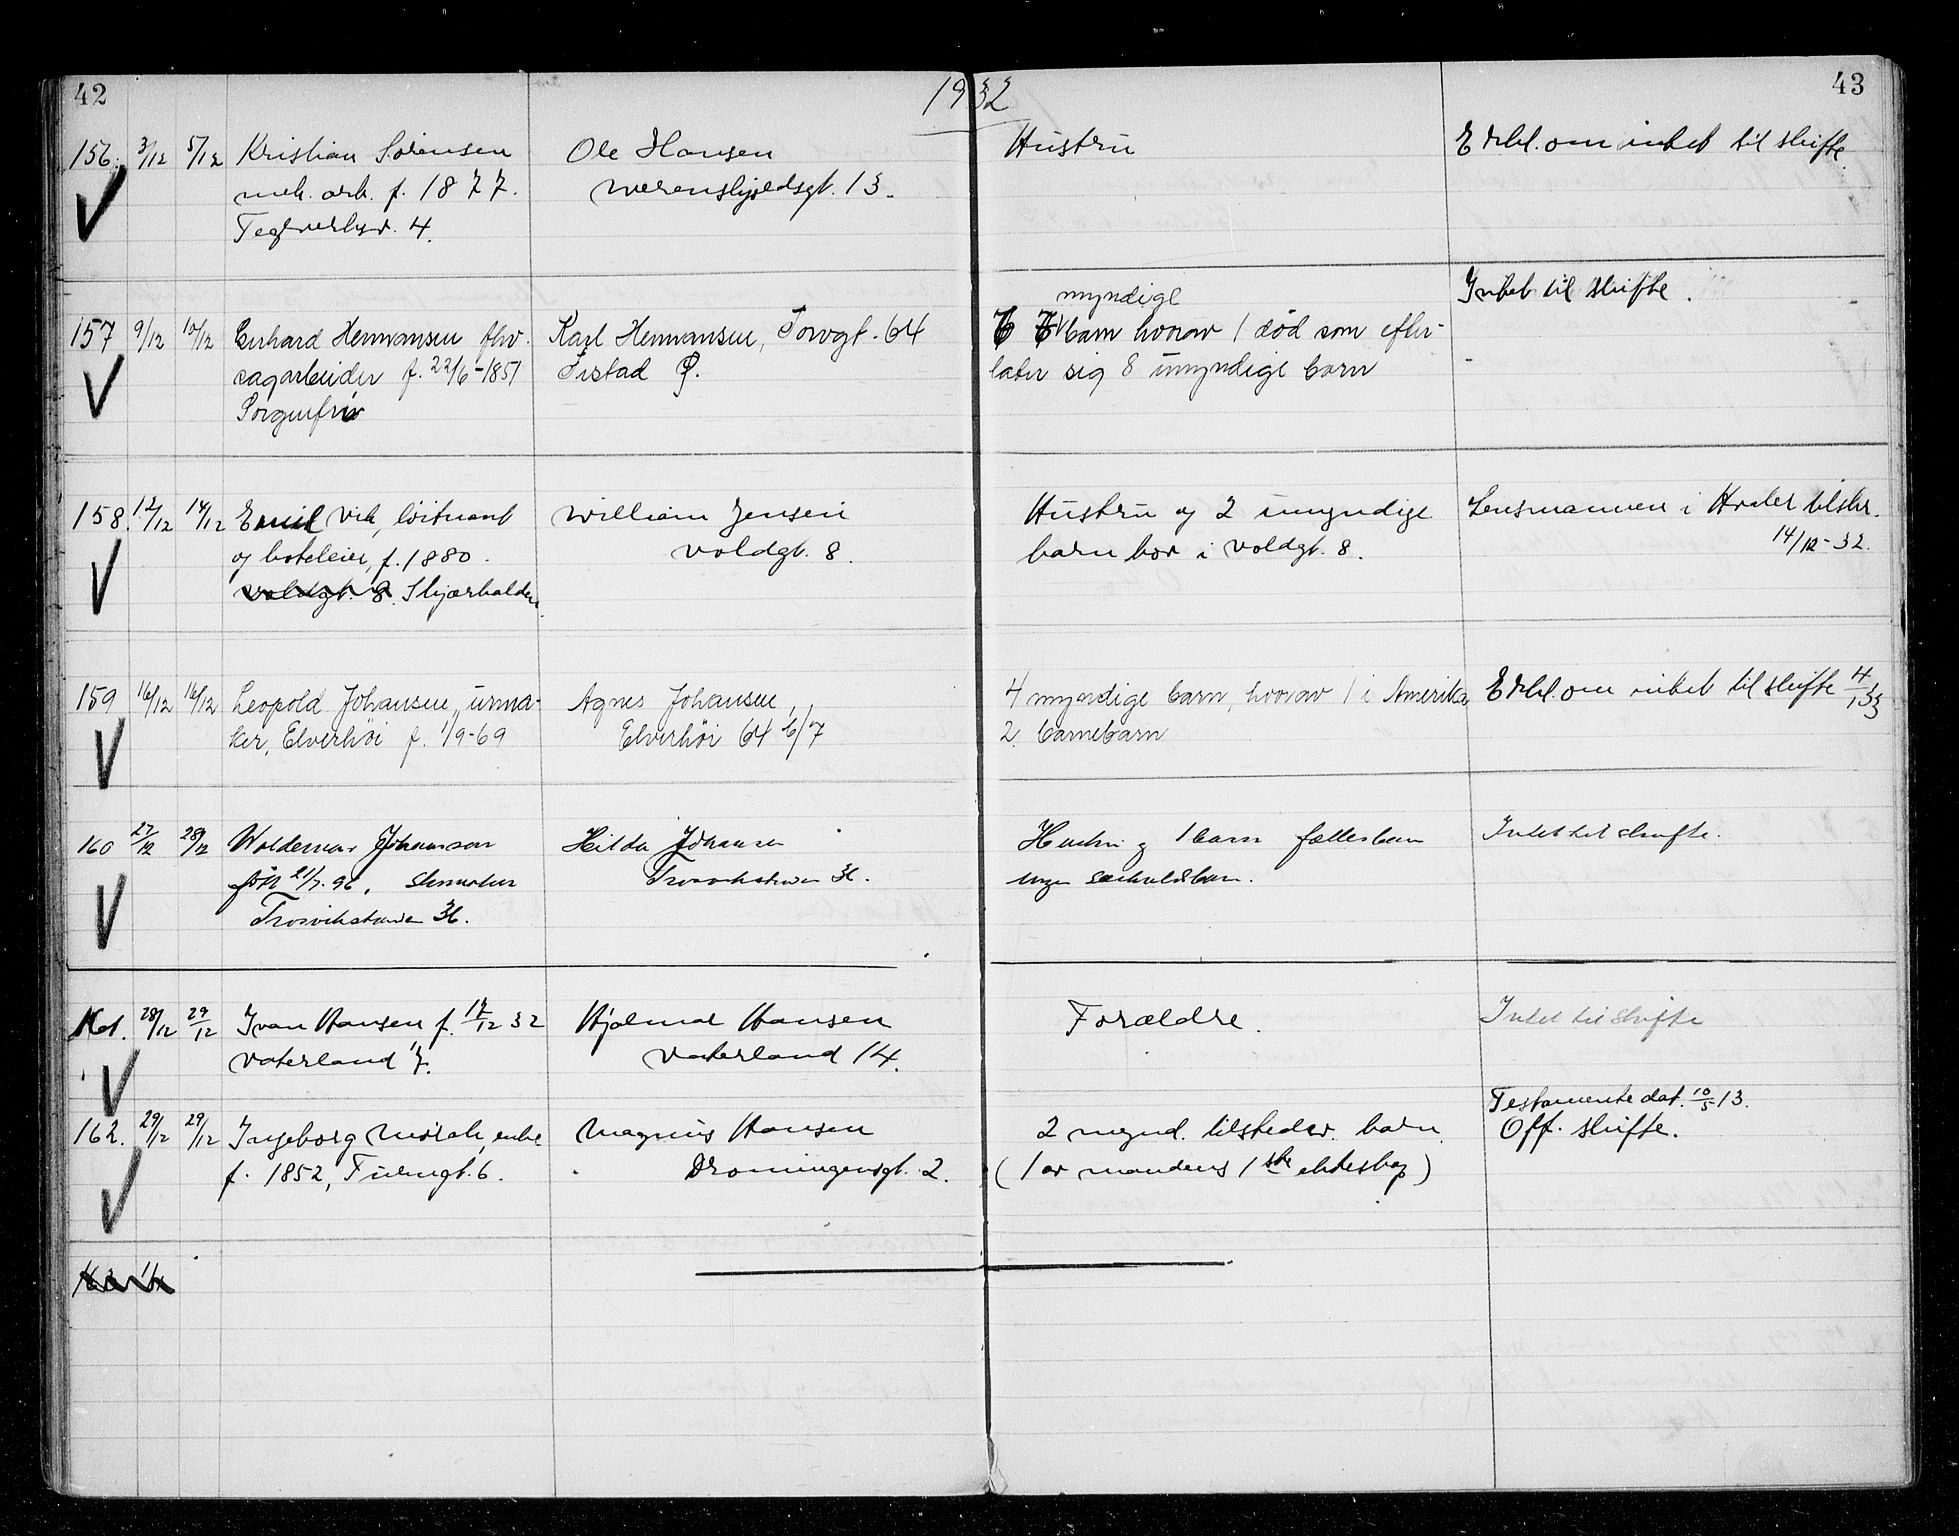 42
1932
43
156. 3/12 5/12 Kristian Sørensen
mek. arb. f. 1877.
Teglverksv. 4.
Ole Hansen
Werenskjoldsgt. 13.
Hustru
Erkl. om intet til skifte.
157 9/12 10/12 Erhard Hermansen fhv.
sagarbeider f. 22/6-1851
Sorgenfri
Karl Hermansen, Torvgt. 64
F.stad Ø.
myndige
barn hvorav 1 død som efter-
later sig 8 umyndige barn
Intet til skifte.
158. 12/12 14/12 Emil Vik, løitnant
og hoteleier, f. 1880.
voldgt. 8. Skjærhalden.
William Jensen
Voldgt. 8.
Hustru og 2 umyndige
barn bor i Voldgt. 8.
Lensmannen i Hvaler tilskr.
14/12-32.
159 16/12 16/12 Leopold Johansen, urma-
ker, Elverhöi f. 1/9-69
Agnes Johansen,
Elverhöi 64 b/7
4 myndige barn, hvorav 1 i Amerika
2 barnebarn
Erkl. om intet til skifte 4/1 33
160 27/12 28/12 Woldemar Johansen
født 21/7. 96.
Trosvikstranden 36.
Hilda Johansen
Trosvikstranden 36.
Hustru og 1 barn fællesbarn
ingen særkuldsbarn.
Intet til skifte.
161. 28/12 29/12 Ivan Hansen, f. 17/12 32
Vaterland 7.
Hjalmar Hansen
Vaterland 14.
Forældre.
Intet til skifte
162. 29/12 29/12 Ingeborg Mørck, enke
f. 1852, Furugt. 6.
Magnus Hansen
Dronningensgt. 2.
2 mynd. tilstedev. barn
(1 av mandens 1ste ekteskap)
Testamente dat. 10/5 13.
Off. skifte.